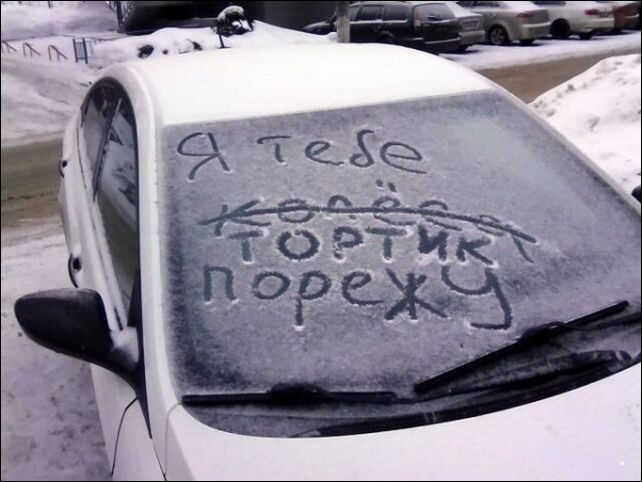 Я тебе
колёса
ТОРТИК
порежу